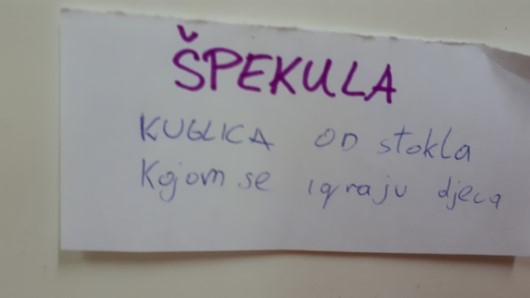 ŠPEKULA
KUGLICA OD stokla
Kojom se igraju djeca